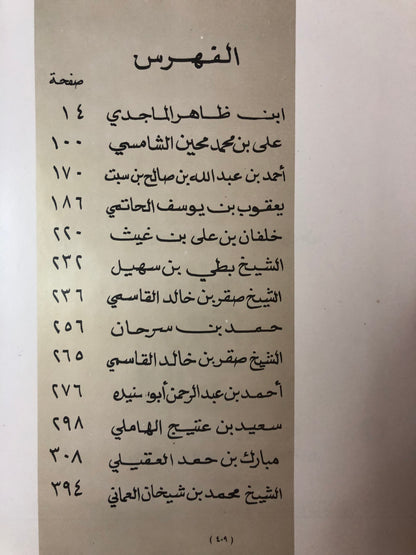 الفهرس
صفحة
ابن ظاهر الماجدي ١٤
على بن محمد محين الشامسي ١٠٠
أحمد بن عبد الله بن صالح بن سبت ١٧٠
يعقوب بن يوسف الحاتمي ١٨٦
خلفان بن على بن غيث ٢٢٠
الشيخ بطي بن سهيل ٢٣٢
الشيخ صقر بن خالد القاسمي ٢٣٦
حمد بن سرحان ٢٥٦
الشيخ صقر بن خالد القاسمي ٢٦٥
أحمد بن عبد الرحمن أبو سنيده ٢٧٦
سعيد بن عتيج الهاملي ٢٩٨
مبارك بن حمد العقيلي ٣٠٨
الشيخ محمد بن شيخان العماني ٣٩٤
(٤٠٩)